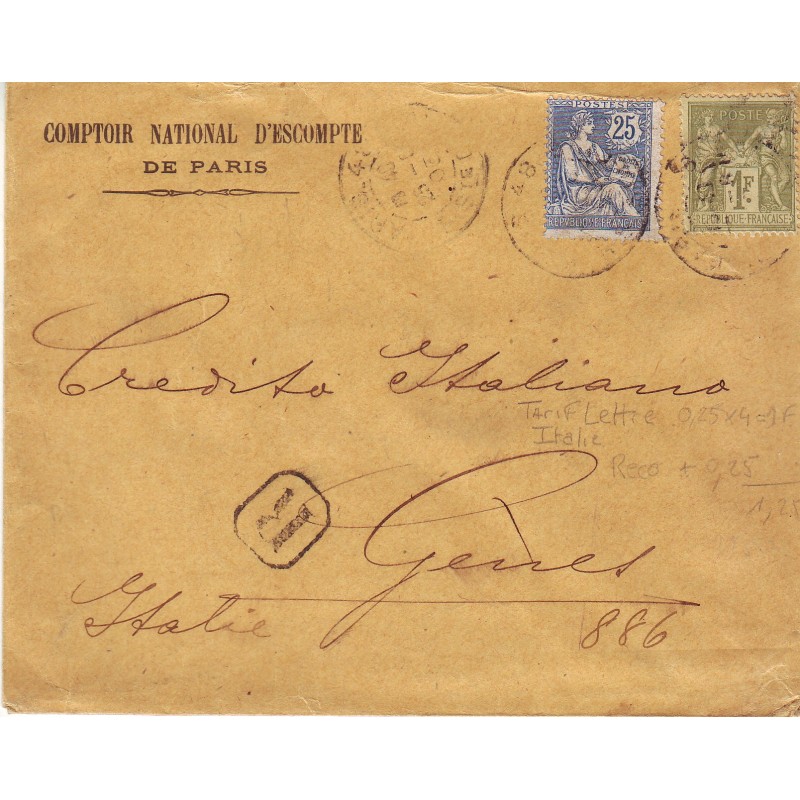 COMPTOIR NATIONAL D'ESCOMPTE
DE PARIS
POSTES
25
REPUBLIQUE FRANÇAISE
POSTE
1F.
REPUBLIQUE FRANÇAISE
48
Credito Italiano
Tarif Lettre 0,25x4=1F
Italie
Reco + 0,25
1,25
R
Gênes
Italie
886